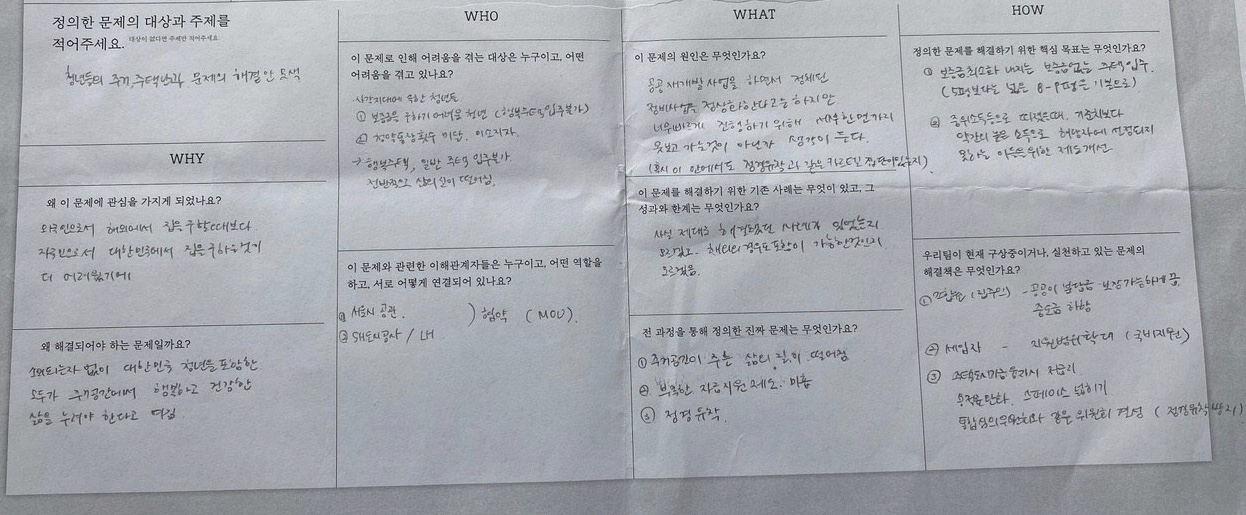 정의한 문제의 대상과 주제를
적어주세요. 대상이 없다면 주제만 적어주세요
청년들의 주거, 주택난과 문제의 해결안 모색
WHY
왜 이 문제에 관심을 가지게 되었나요?
외국인으로서 해외에서 집을 구할때보다
자국인으로서 대한민국에서 집을 구하는것이
더 어려웠기에
왜 해결되어야 하는 문제일까요?
소외되는자 없이 대한민국 청년을 포함한
모두가 주거공간에서 행복하고 건강한
삶을 누려야 한다고 여김
WHO
이 문제로 인해 어려움을 겪는 대상은 누구이고, 어떤
어려움을 겪고 있나요?
사각지대에 속한 청년들
① 보증금을 구하기 어려운 청년 (행복주택 입주불가)
② 청약통장횟수 미만, 미소지자.
→ 행복주택, 일반 주택 입주불가
전반적으로 삶의 질이 떨어짐
이 문제와 관련한 이해관계자들은 누구이고, 어떤 역할을
하고, 서로 어떻게 연결되어 있나요?
① 서울시 공관. ) 협약 (MOU).
② SH도시공사 / LH
WHAT
이 문제의 원인은 무엇인가요?
공공재개발 사업을 하면서 정체된
정비사업을 정상화한다고는 하지만
너무빠르게 진행하기 위해 세우한면까지
못보고 가는것이 아닌가 생각이 든다.
(혹시 이 안에서도 정경유착과 같은 카르텔 집단이있는지)
이 문제를 해결하기 위한 기존 사례는 무엇이 있고, 그
성과와 한계는 무엇인가요?
사실 제대로 해결됐던 사례가 있었는지
모르겠고. 해외의 경우도 포함이 가능한것인지
모르겠음.
전 과정을 통해 정의한 진짜 문제는 무엇인가요?
① 주거공간이 주는 삶의 질이 떨어짐
② 부족한 자금지원 제도. 미흡
③ 정경유착.
HOW
정의한 문제를 해결하기 위한 핵심 목표는 무엇인가요?
① 보증금최소화 내지는 보증금없는 주택입주.
(5평보다는 넓은 8-9평을 기본으로)
② 중위소득등으로 따졌을때. 기준치보다
약간의 높은 소득으로 해당자에 선정되지
못하는 이들을 위한 제도개선
우리팀이 현재 구상중이거나, 실천하고 있는 문제의
해결책은 무엇인가요?
① 조합원 (집주인) - 공공이 분담금 보장가능하게끔
중도금 하향
② 세입자 - 지원범위확대 (국비지원)
③ 주택도시기금 융자시 저금리
용적률완화. 스페이스 넓히기
통합심의위원회와 같은 위원회 결성 (정경유착방지)